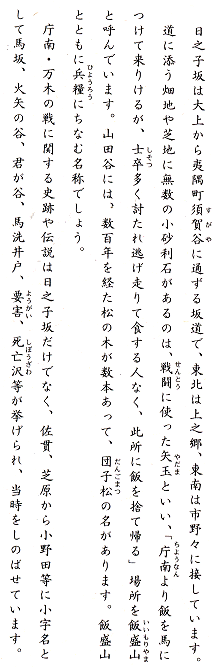 日之子坂は大上から夷隅町須賀谷に通ずる坂道で、東北は上之郷、東南は市野々に接しています。
道に添う畑地や芝地に無数の小砂利石があるのは、戦闘に使った矢玉といい、「庁南より飯を馬に
つけて来りけるが、士卒多く討たれ逃げ走りて食する人なく、此所に飯を捨て帰る」場所を飯盛山
と呼んでいます。山田谷には、数百年を経た松の木が数本あって、団子松の名があります。飯盛山
とともに兵糧にちなむ名称でしょう。
庁南・万木の戦に関する史跡や伝説は日之子坂だけでなく、佐貫、芝原から小野田等に小字名と
して馬坂、火矢の谷、君が谷、馬洗井戸、要害、死亡沢等が挙げられ、当時をしのばせています。